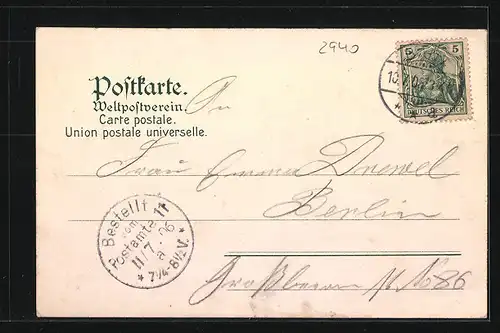 2940
5 5
DEUTSCHES REICH
Postkarte.
Weltpostverein.
Carte postale.
Union postale universelle.
An
Frau Emma Drewel
Berlin
Bestellt
vom
Postamte 11
11/7.06
a
* 7¼-8½V. *
Großbeeren No 86